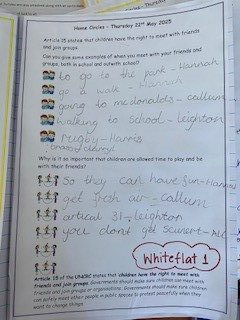 Home Circles – Thursday 22nd May 2025
Article 15 states that children have the right to meet with friends
and join groups.
Can you give some examples of when you meet with your friends and
groups, both in school and outwith school?
to go to the park - Hannah
go a walk - Hannah
going to mcdonalds - callum
walking to school - leighton
rugby - Harris
Why is it so important that children are allowed time to play and be
with their friends?
So they can have fun - Hannah
get fresh air - callum
artical 31 - leighton
you dont get
Whiteflat 1
Article 15 of the UNCRC states that children have the right to meet
with friends and join groups. Governments should make sure children can meet with
friends and join groups or organisations. Governments should make sure children
can safely meet other people in public spaces to protest peacefully when they
want to change things.